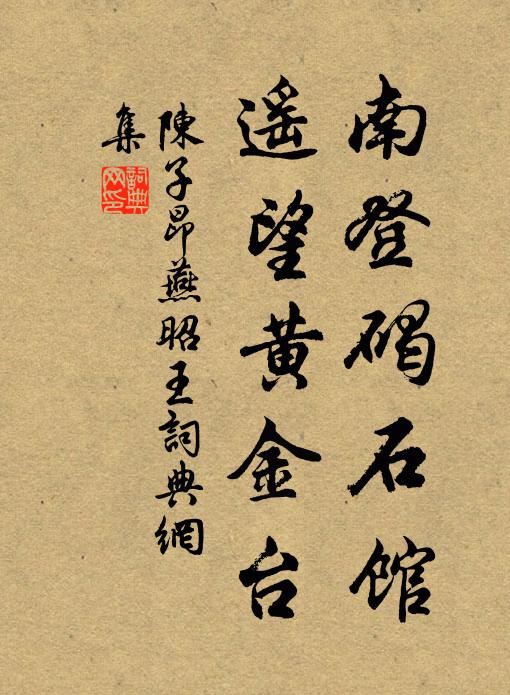 南登碣石馆
遥望黄金台
陳子昂燕昭王詞典網
集
詞典
网印